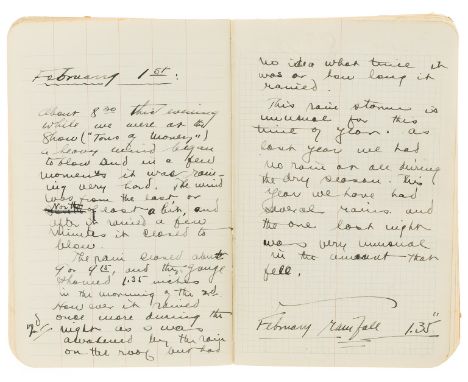 February 1st.
About 8 30 this evening
while we were at the
Show ("Tons of Money")
a heavy wind began
to blow and in a few
moments it was rain-
ing very hard. The wind
was from the east, or
North of east a bit, and
after it rained a few
minutes it ceased to
blow.
The rain ceased about
9 or 9 15, and the gauge
showed 1.35 inches
in the morning of the 2nd
However it rained
once more during the
2d night as I was
awakened by the rain
on the roof but had
no idea what time it
was or how long it
rained.
This rain storm is
unusual for this
time of year. as
last year we had
no rain at all during
the dry season. This
year we have had
several rains and
the one last night
was very unusual
in the amount that
fell.
February rainfall 1.35"